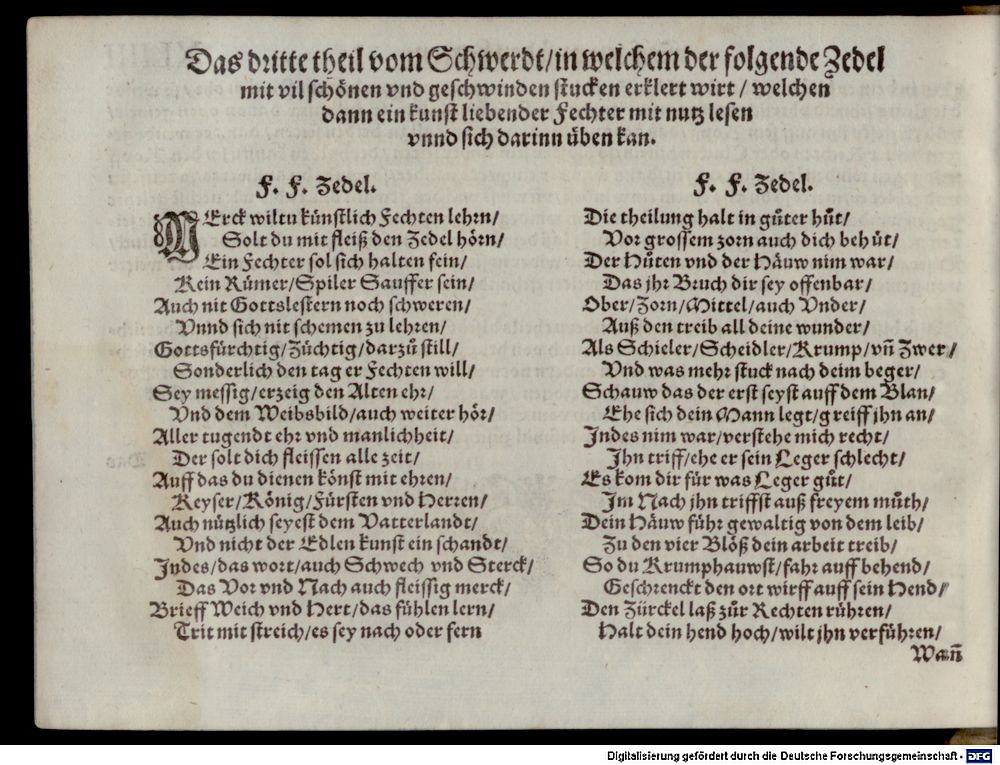 Das dritte theil vom Schwerdt/in welchem der folgende Zedel
mit vil schönen vnd geschwinden stucken erklert wirt / welchen
dann ein kunst liebender Fechter mit nutz lesen
vnnd sich darinn üben kan.
F. F. Zedel.
MErck wiltu künstlich Fechten lehrn/
Solt du mit fleiß den Zedel hörn/
Ein Fechter sol sich halten fein/
Kein Rümer/Spiler Sauffer sein/
Auch nit Gottslestern noch schweren/
Vnnd sich nit schemen zu lehren/
Gottsfürchtig/Züchtig/darzů still/
Sonderlich den tag er Fechten will/
Sey messig/erzeig den Alten ehr/
Vnd dem Weibsbild/auch weiter hör/
Aller tugendt ehr vnd manlichheit/
Der solt dich fleissen alle zeit/
Auff das du dienen könst mit ehren/
Keyser/König/Fürsten vnd Herren/
Auch nützlich seyest dem Vatterlandt/
Vnd nicht der Edlen kunst ein schandt/
Indes/das wort/auch Schwech vnd Sterck/
Das Vor vnd Nach auch fleissig merck/
Brieff Weich vnd Hert/das fühlen lern/
Trit mit streich/es sey nach oder fern
F. F. Zedel.
Die theilung halt in gůter hůt/
Vor grossem zorn auch dich behůt/
Der Hůten vnd der Häuw nim war/
Das jhr Bruch dir sey offenbar/
Ober/Zorn/Mittel/auch Vnder/
Auß den treib all deine wunder/
Als Schieler/Scheidler/Krump/vñ Zwer/
Vnd was mehr stuck nach deim beger/
Schauw das der erst seyst auff dem Blan/
Ehe sich dein Mann legt/greiff jhn an/
Indes nim war/verstehe mich recht/
Ihn triff/ehe er sein Leger schlecht/
Es kom dir für was Leger gůt/
Im Nach jhn triffst auß freyem můth/
Dein Häuw führ gewaltig von dem leib/
Zu den vier Blöß dein arbeit treib/
So du Krumphauwst/fahr auff behend/
Geschrenckt den ort wirff auff sein Hend/
Den Zürckel laß zůr Rechten rühren/
Halt dein hend hoch/wilt jhn verführen/
Wañ
Digitalisierung gefördert durch die Deutsche Forschungsgemeinschaft - DFG